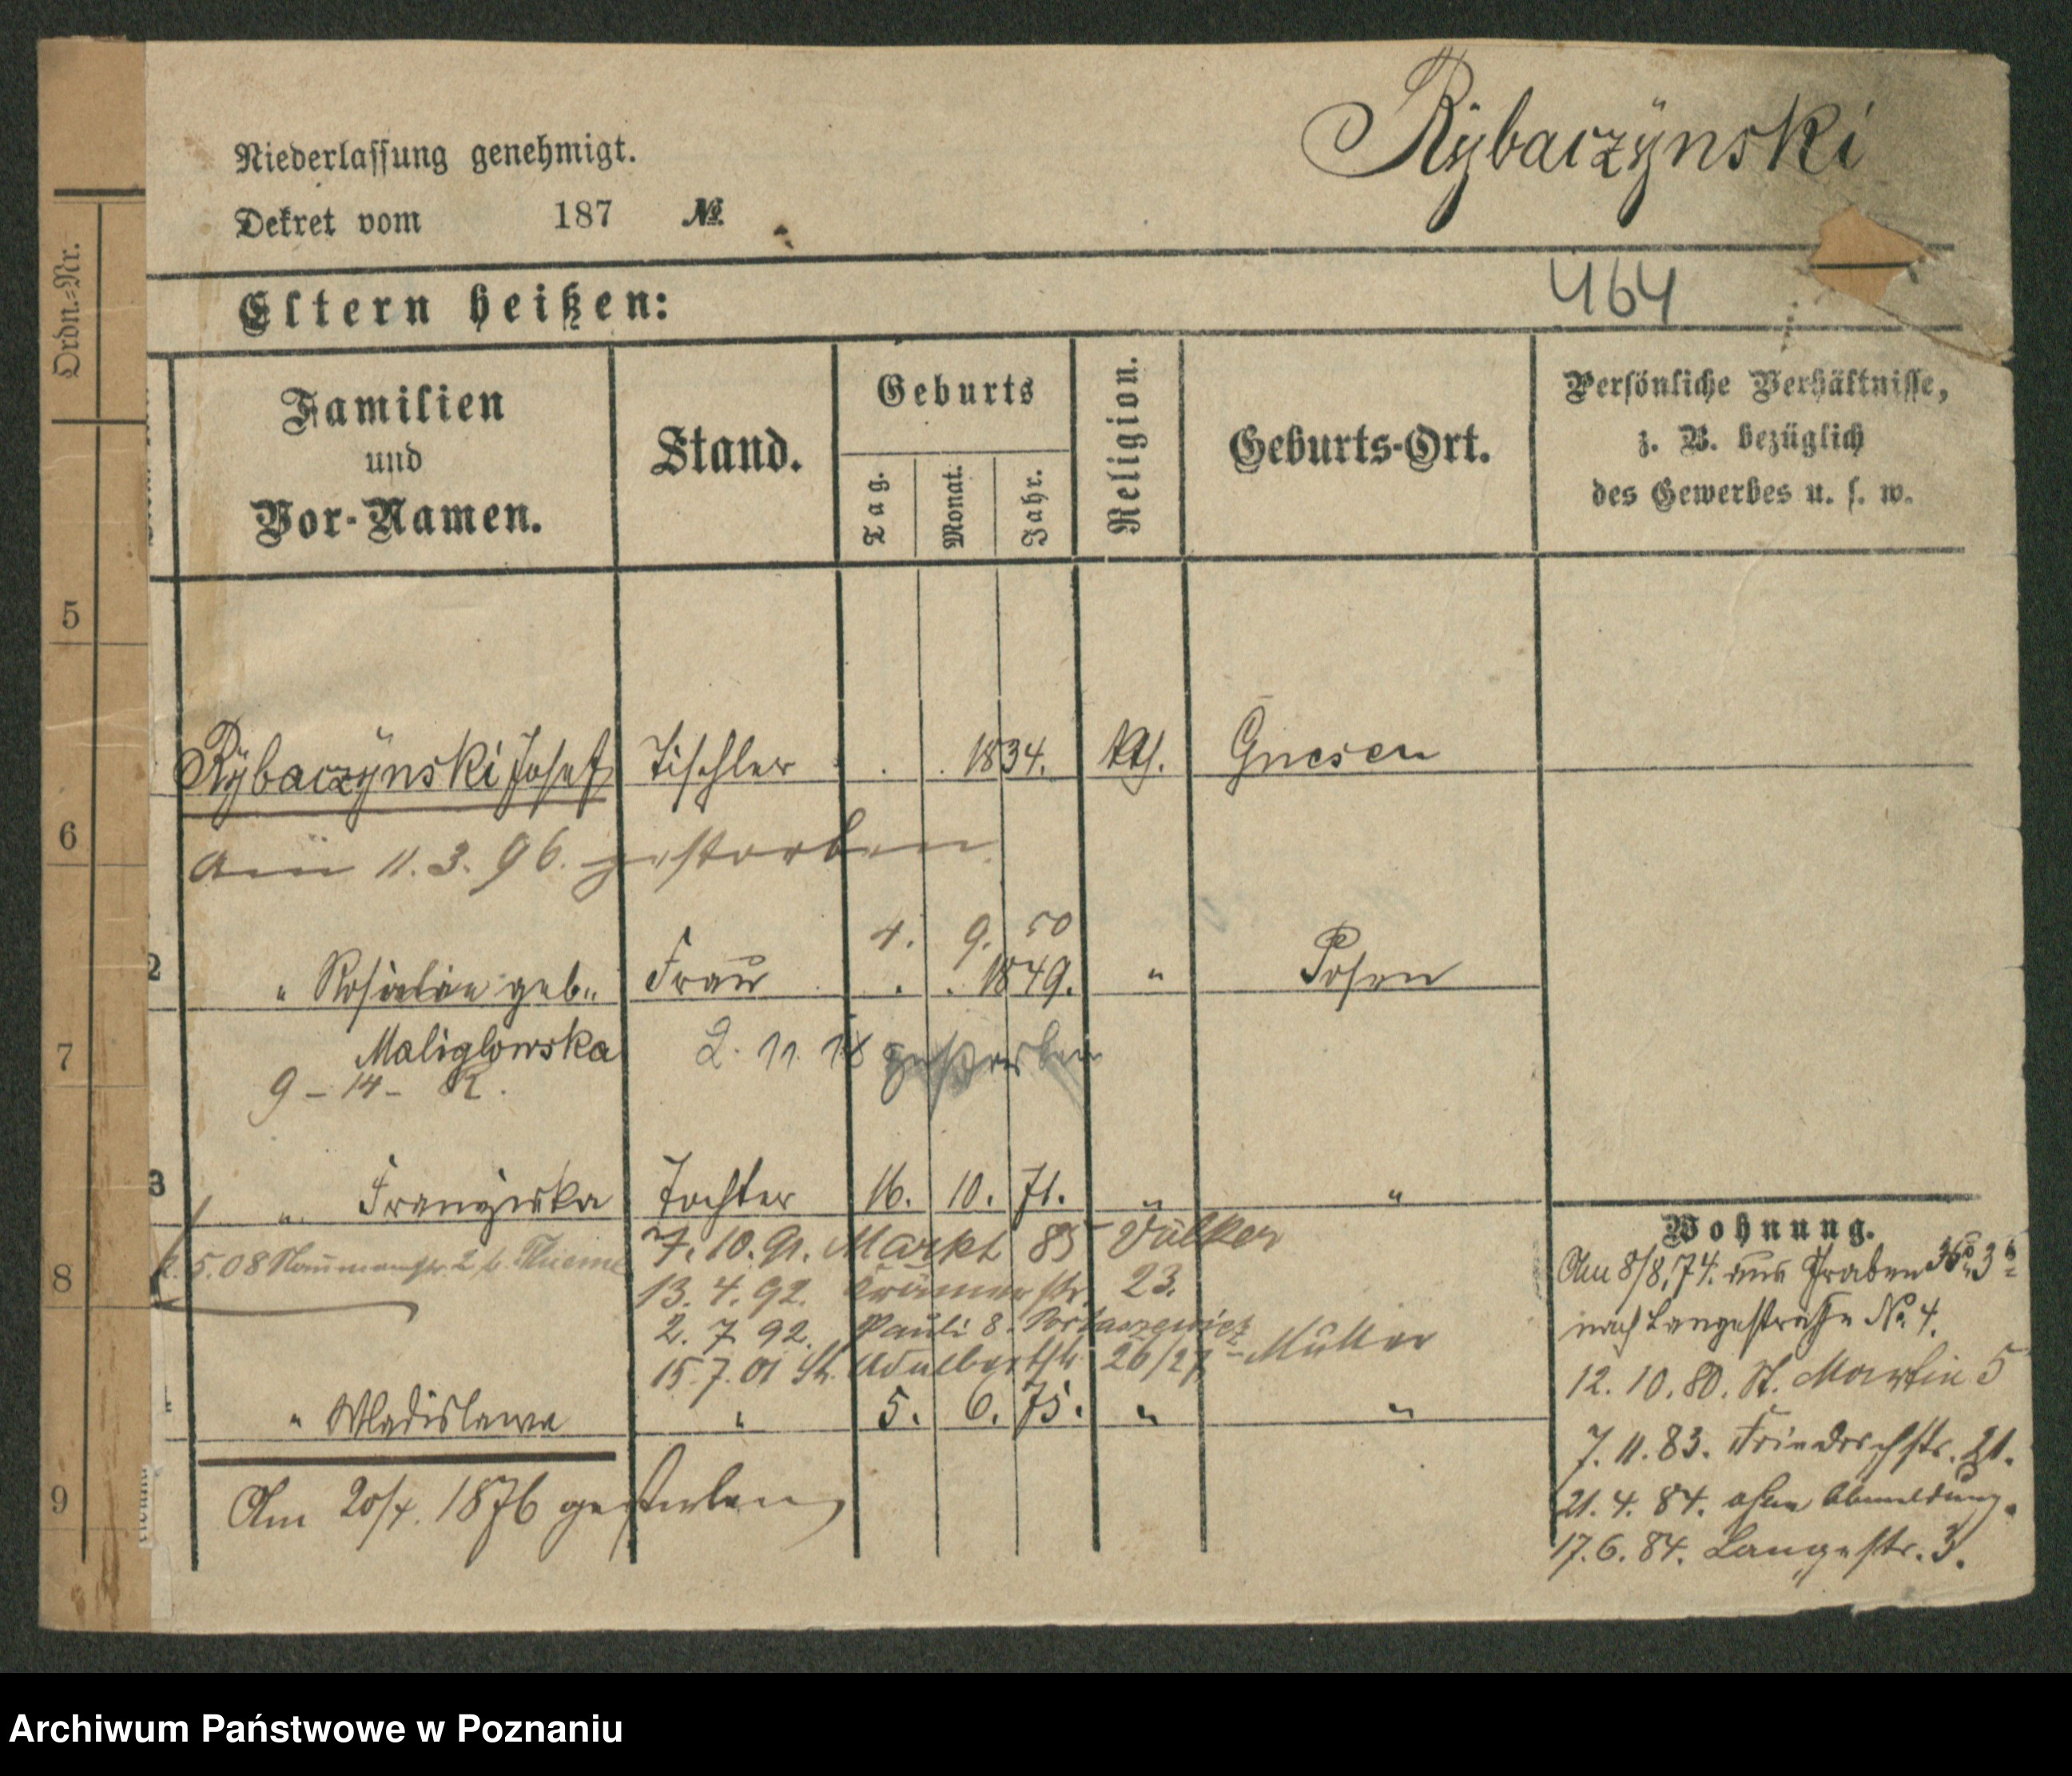 Rÿbaczÿnski
Niederlassung genehmigt.
Dekret vom 187 №
464
Eltern heißen:
Ordn.-Nr.
Familien
und
Vor-Namen.
Stand.
Geburts
Tag. Monat. Jahr.
Religion.
Geburts-Ort.
Persönliche Verhältnisse,
z. B. bezüglich
des Gewerbes u. s. w.
5
Rÿbaczÿnski Josef Tischler . . 1834. kth. Gnesen
6
am 11. 3. 96. gestorben
4. 9. 50
2 " Rosalie geb. Frau . . 1849. " Posen
7
Maliglowska 2. 11. 18 gestorben
9 - 14 - R.
3 " Franziska Tochter 16. 10. 71. " "
8
5.08 Naumannstr. 2 b. Thieme
7. 10. 91. Markt 85 Völker
13. 4. 92. Krämerstr. 23.
2. 7. 92. Pauli 8.
15. 7. 01 St. Adalbertstr. 26/27 - Müller
" Wladislawa " 5. 6. 75. " "
9
Am 20/4. 1876 gestorben
Wohnung.
Am 8/8. 74. aus Graben
nach Langestraße No. 4.
12. 10. 80. St. Martin 5
7. 11. 83. Friedrichstr. 21.
21. 4. 84. ohne Abmeldung.
17. 6. 84. Langestr. 3.
Archiwum Państwowe w Poznaniu